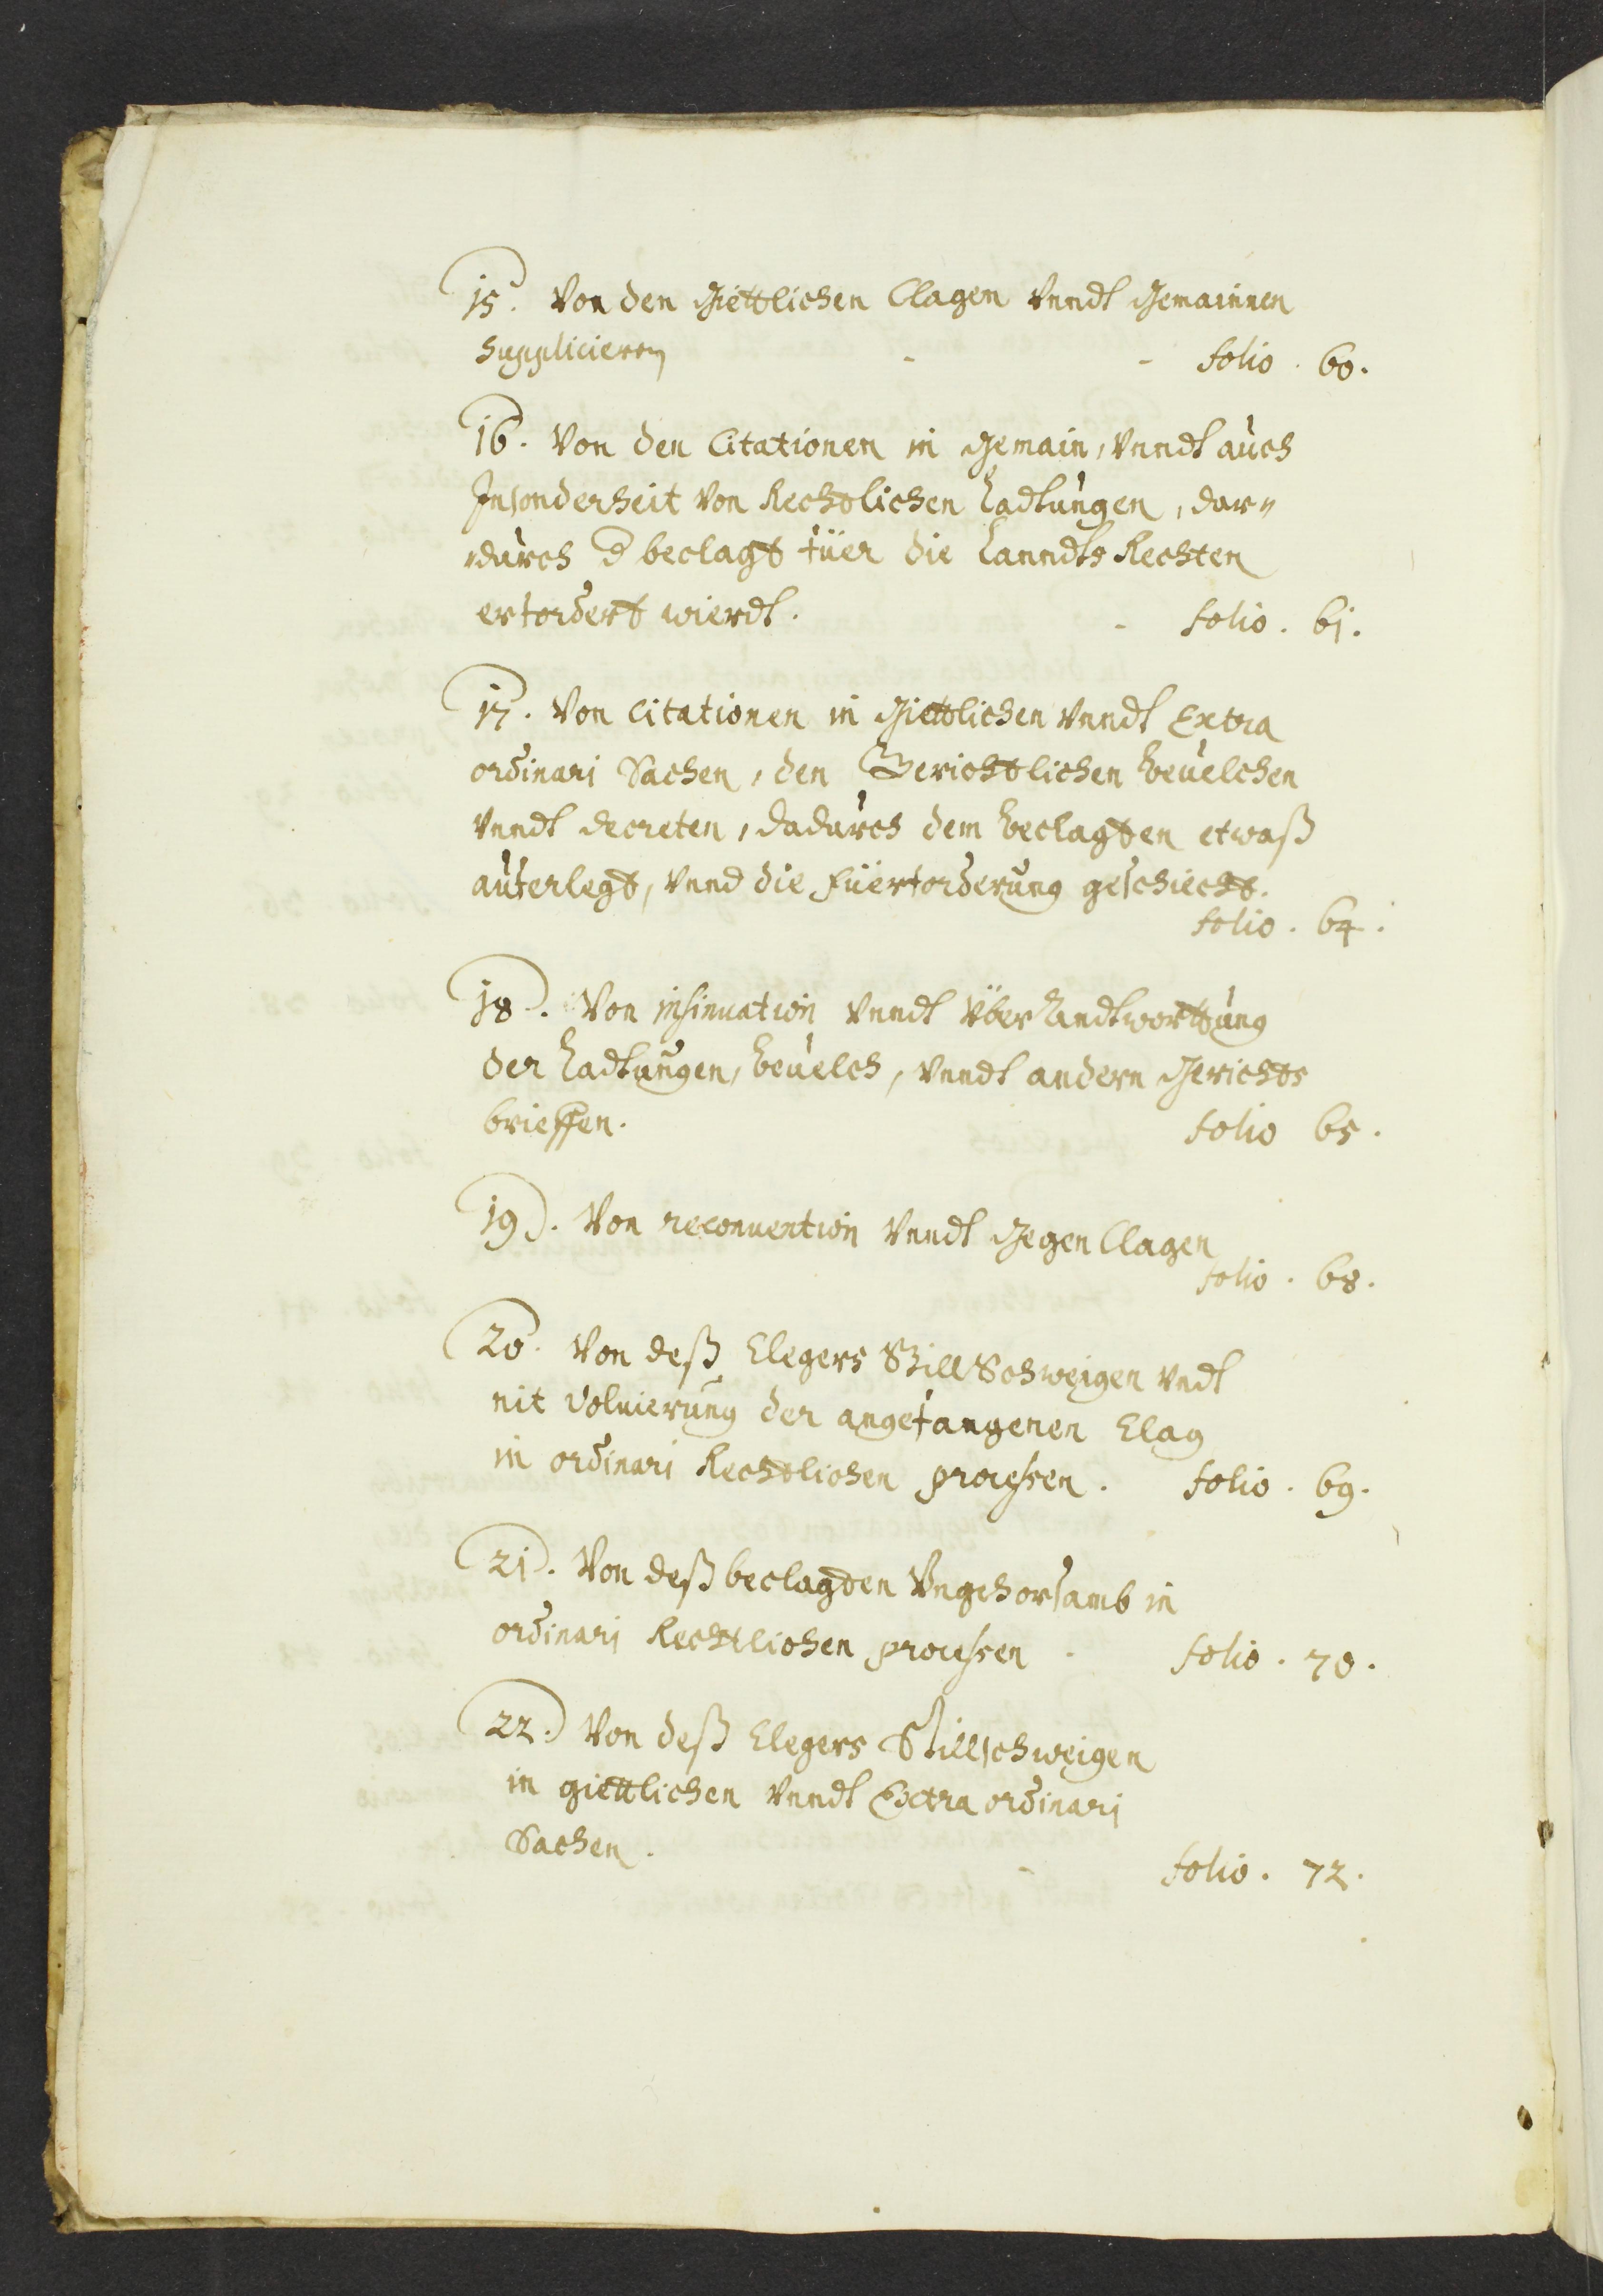 15. Von den Giettlichen Clagen Vnndt Gemainnen
Supplicieren - - folio . 60.
16. Von den Citationen in Gemain, Vnndt auch
Insonderheit von Rechtlichen Ladtungen, dar„
„durch d beclagt füer die Lanndts Rechten
erfordert wierdt. - folio . 61.
17. Von Citationen in Giettlichen Vnndt Extra
ordinari Sachen, den Gerichtlichen beuelchen
Vnndt decreten, dadurch dem beclagten etwaß
auferlegt, Vnnd die Füerforderung geschiecht.
folio . 64.
18. Von insinuation Vnndt Über Andtworttung
der Ladtungen, beuelch, Vnndt andern Gerichts
brieffen. folio 65.
19. Von reconuention Vnndt Gegen Clagen
folio . 68.
20. Von deß Clegers Still Schweigen Vndt
nit Volnierung der angefangenen Clag
in ordinari Rechtlichen processen. folio . 69.
21. Von deß beclagten Vngehorsamb in
ordinari Rechtlichen processen . folio . 70.
22. Von deß Clegers Stillschweigen
in giettlichen Vnndt Extra ordinari
Sachen. -
folio . 72.